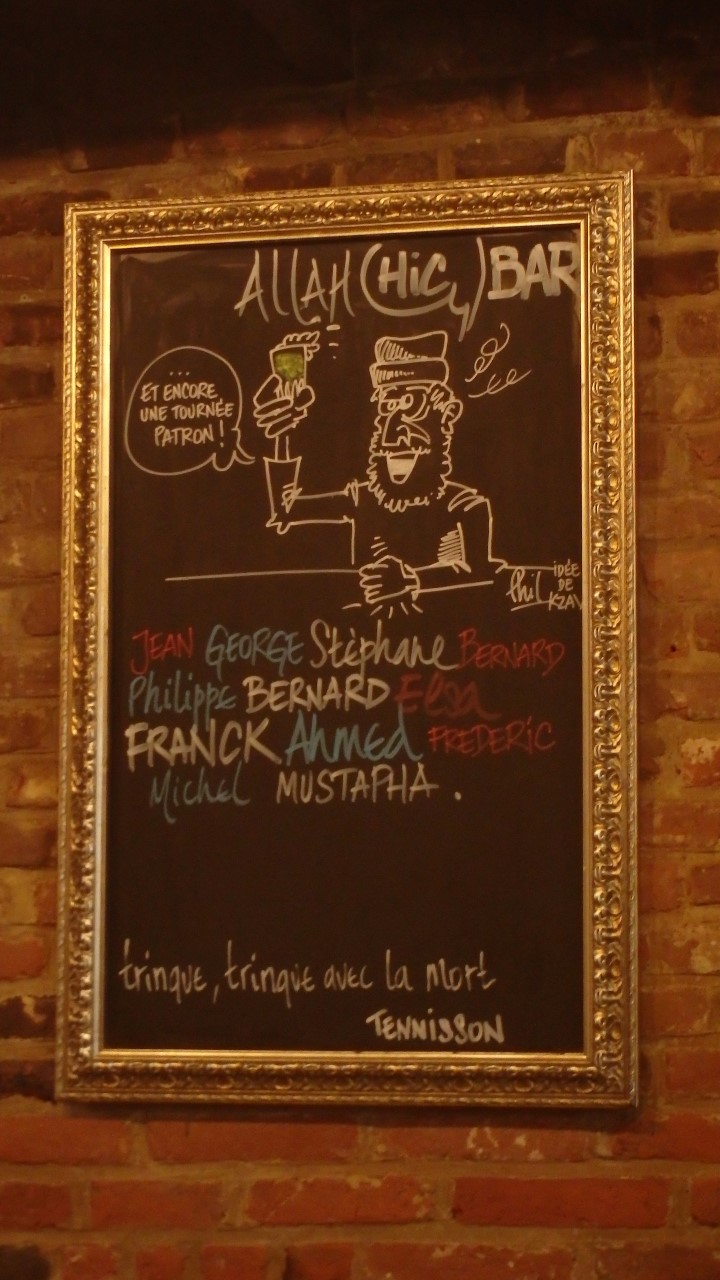 ALLAH (HiC,,) BAR
...
ET ENCORE
UNE TOURNÉE
PATRON !
Phil
IDÉE
DE
KZAV
JEAN GEORGE Stéphane BERNARD
Philippe BERNARD Elsa
FRANCK Ahmed FREDERIC
Michel MUSTAPHA .
trinque, trinque avec la mort
TENNISSON